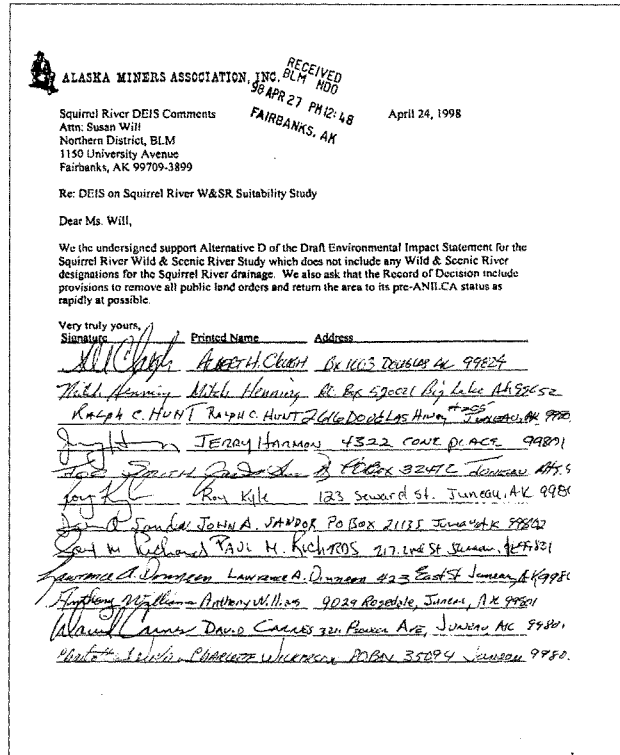 ALASKA MINERS ASSOCIATION, INC.
RECEIVED
BLM NDO
98 APR 27 PM 12:48
FAIRBANKS, AK
Squirrel River DEIS Comments April 24, 1998
Attn: Susan Will
Northern District, BLM
1150 University Avenue
Fairbanks, AK 99709-3899
Re: DEIS on Squirrel River W&SR Suitability Study
Dear Ms. Will,
We the undersigned support Alternative D of the Draft Environmental Impact Statement for the
Squirrel River Wild & Scenic River Study which does not include any Wild & Scenic River
designations for the Squirrel River drainage. We also ask that the Record of Decision include
provisions to remove all public land orders and return the area to its pre-ANILCA status as
rapidly at possible.
Very truly yours,
Signature Printed Name Address
ALBERT H. CLOUGH Bx 1003 DOUGLAS AK 99824
Mitch Henning Mitch Henning Big Lake AK 99652
RALPH C. HUNT RALPH C. HUNT 2616 DOUGLAS HIWAY #205 JUNEAU, AK
JERRY HARMON 4322 CONE PLACE 99801
JOE SMITH PO BOX JUNEAU
Roy Kyle 123 Seward St. Juneau, AK
JOHN A. SANDOR PO BOX 21135 Juneau AK 99802
Paul M. Richards PAUL M. RICHARDS 217 2nd St Juneau,
Lawrence A. Dinneen LAWRENCE A. Dinneen 423 East St Juneau, AK
Anthony Williams Anthony Williams 9029 Rosedale, Juneau, AK 99801
DAVID CARNES AVE, JUNEAU AK 99801
CHARLOTTE PO Box 35094 Juneau